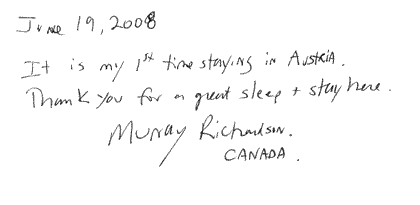 June 19, 2008
It is my 1st time staying in Austria.
Thank you for a great sleep + stay here.
Murray Richardson.
CANADA.